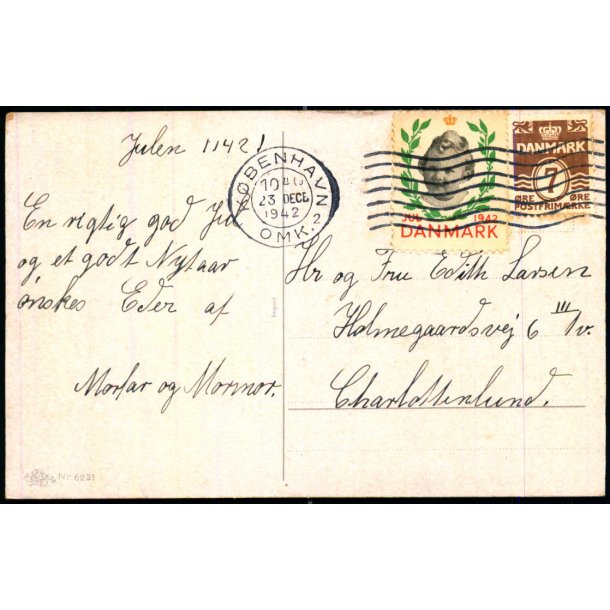 Julen 1142!
En rigtig god Jul
og et godt Nytaar
ønskes Eder af
Morfar og Mormor.
Nr. 6231
Import
KØBENHAVN
23 DECE
1942
OMK. 2
JUL 1942
DANMARK
DANMARK
7
ØRE ØRE
POSTFRIMÆRKE
Hr og Fru Edith Larsen
Holmegaardsvej 6 III/v.
Charlottenlund.